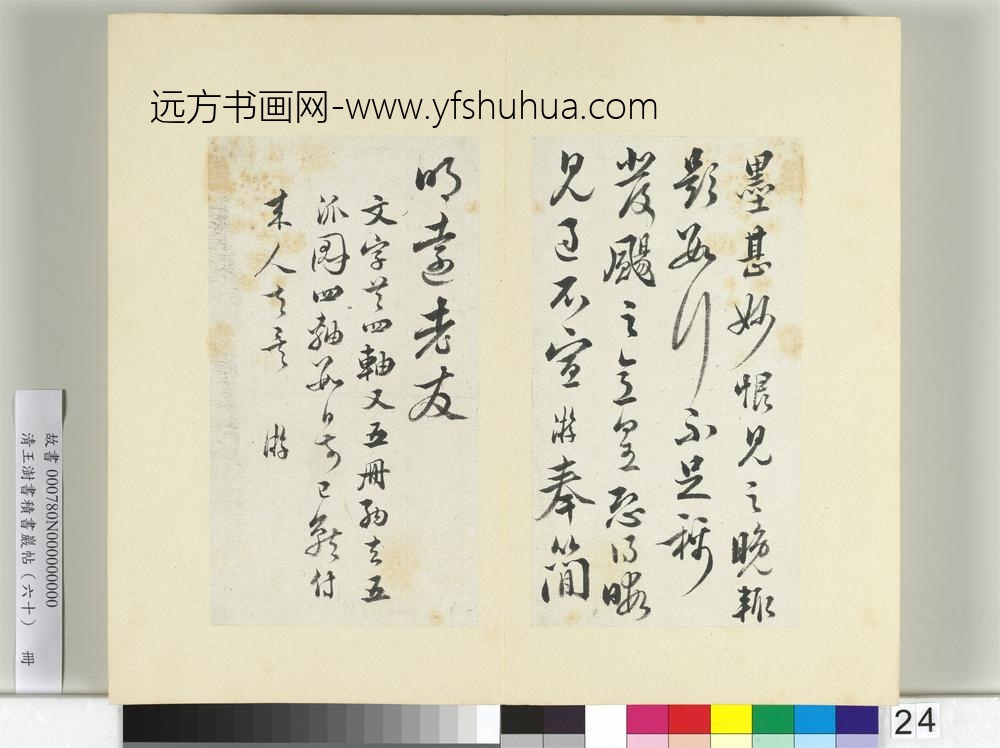 远方书画网-www.yfshuhua.com
墨甚妙恨见之晚輒
影数行不足稱
發颺之意
見過不宣游奉簡
明遠老友
文字共四軸又五冊納去五
派圖四軸數日前已付
来人
游
故書 000780N000000000
清王澍書積書巖帖(六十) 冊
24